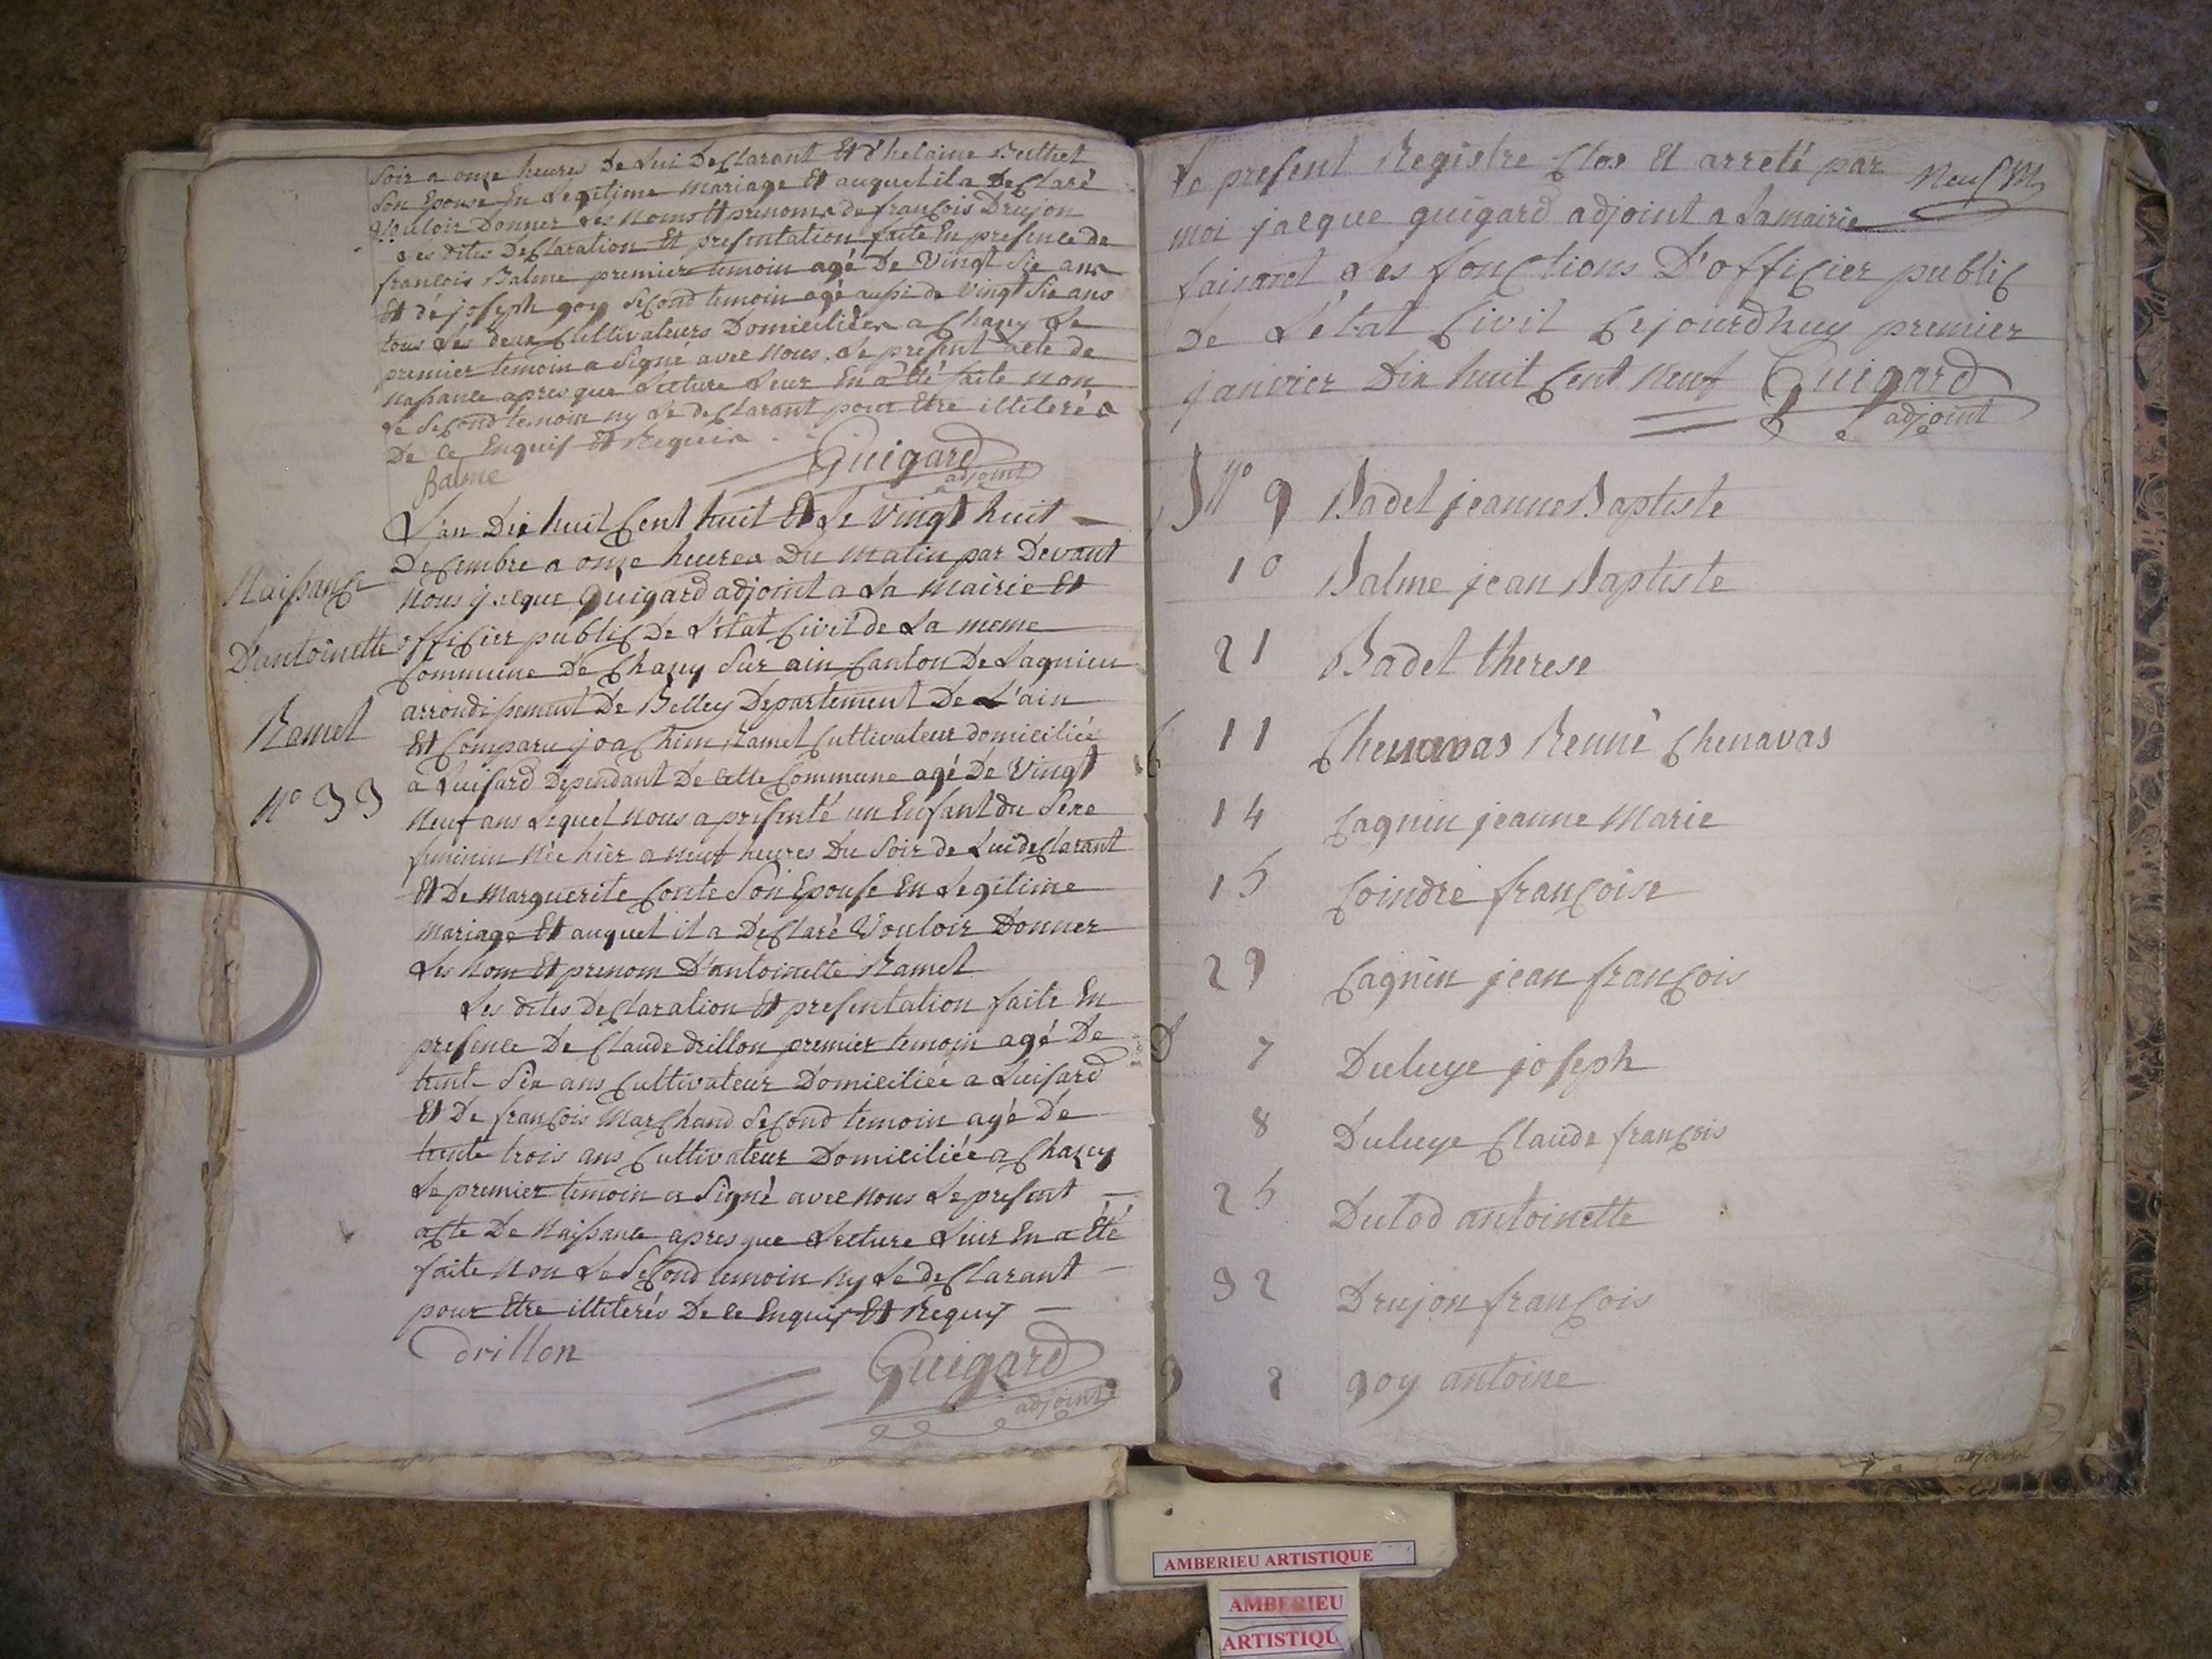 Soir a onze heures de Lui Declarant Et d'helaine Berthet
Son Epouse En Legitime Mariage Et auquel il a Declaré
Vouloir Donner Les Noms Et prenoms de françois Drujon
Les dites Declaration Et presentation faite En presence de
françois Balme premier temoin agé De Vingt Six ans
Et de joseph goy Second temoin agé aussi de Vingt Six ans
tous Les deux Cultivateurs Domiciliées a Chazey Le
premier temoin a Signé avec Nous Le present acte de
Naissance apres que Lecture Leur En a été faite Non
Le Second temoin ny Le declarant pour Etre illiterés
De ce Enquis Et Requis
Balme
Guigard
adjoint
Naissance
D'antoinette
Ramel
N° 33
L'an Dix huit Cent huit Et Le Vingt huit
Decembre a onze heures Du Matin par Devant
Nous jacque Guigard adjoint a La Mairie Et
officier public De L'état Civil de La meme
Commune De Chazey Sur ain Canton De Lagnieu
arrondissement De Belley Departement De L'ain
Et Comparu joachim Ramel Cultivateur domiciliée
a Luisard Dependant De cette Commune agé De Vingt
Neuf ans Lequel Nous a presenté un Enfant du Sexe
feminin Née hier a Neuf heures Du Soir de Lui declarant
Et De Marguerite Conte Son Epouse En Legitime
Mariage Et auquel il a Declaré Vouloir Donner
Les Nom Et prenom D'antoinette Ramel
Les dites Declaration Et presentation faite En
presence De Claude drillon premier temoin agé De
trente Six ans Cultivateur Domiciliée a Luisard
Et De françois Marchand Second temoin agé De
trente trois ans Cultivateur Domiciliée a Chazey
Le premier temoin a Signé avec Nous Le present
acte De Naissance apres que Lecture Leur En a Eté
faite Non Le Second temoin Ny Le declarant
pour Etre illiterés De ce Enquis Et Requis
drillon
Guigard
adjoint
Le present Registre Clos Et arreté par
moi jacque guigard adjoint a La mairie
faisant Les fonctions D'officier public
De L'état Civil Cejourdhuy premier
janvier Dix huit Cent Neuf Guigard
adjoint
B N° 9 Badel jeanne Baptiste
10 Balme jean Baptiste
21 Badel therese
C 11 Chenavas Renné Chenavas
14 Cagnin jeanne Marie
15 Coindre françoise
29 Cagnin jean françois
D 7 Duluye joseph
8 Duluye Claude françois
25 Dutod antoinette
32 Drujon françois
g 2 goy antoine
AMBERIEU ARTISTIQUE
AMBERIEU
ARTISTIQU